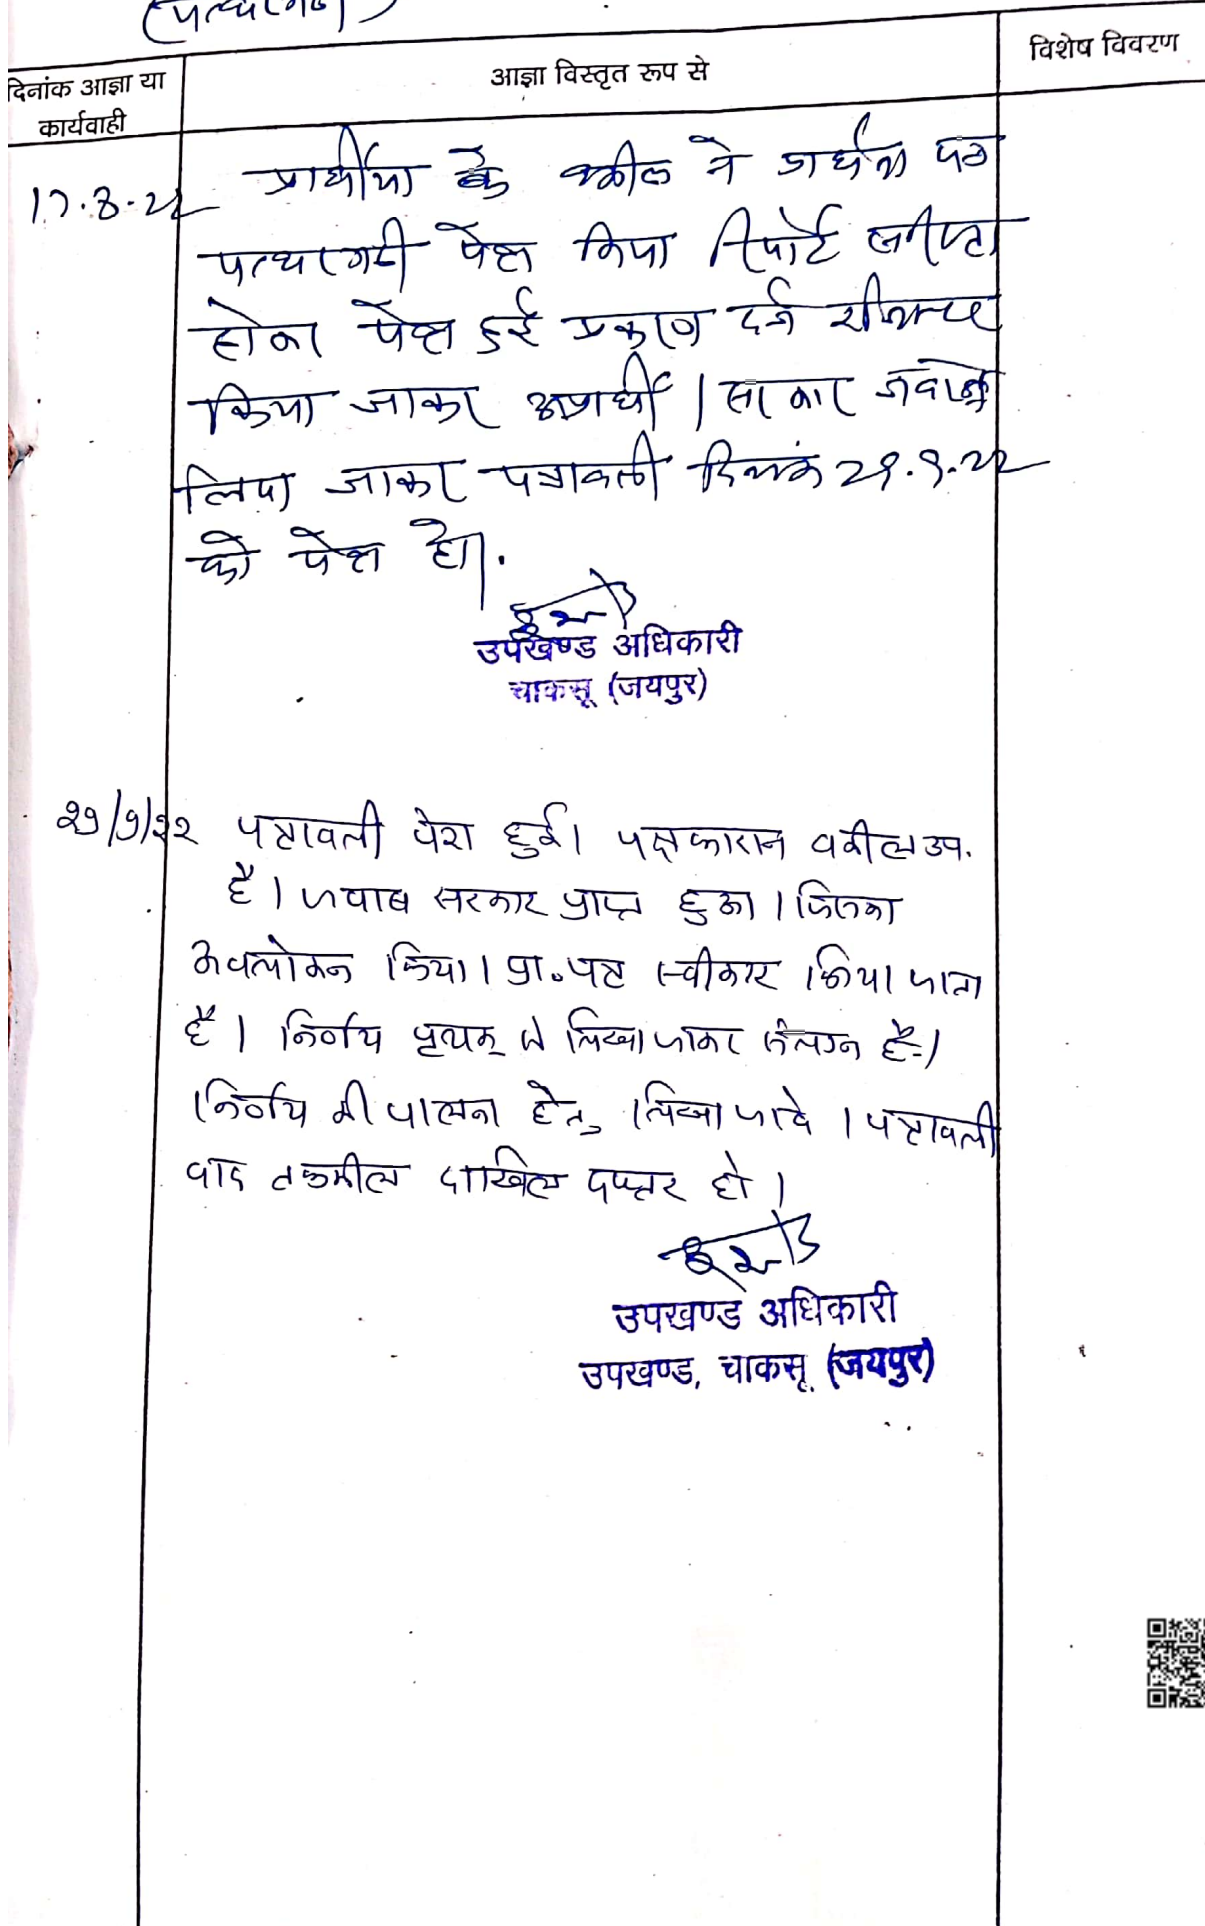 (पत्थरगढी)
दिनांक आज्ञा या
कार्यवाही
आज्ञा विस्तृत रूप से
विशेष विवरण
17.8.22 प्रार्थीया के वकील ने प्रार्थना पत्र
पत्थरगढी पेश किया रिपोर्ट
होकर पेश हुई प्रकरण दर्ज रजिस्टर
किया जाकर अप्रार्थी / सरकार जवाब
लिया जाकर पत्रावली दिनांक 29.9.22
को पेश हो।
उपखण्ड अधिकारी
चाकसू (जयपुर)
२९/9/२२ पत्रावली पेश हुई। पक्षकारान वकील उप.
है। जवाब सरकार प्राप्त हुआ। जिसका
अवलोकन किया। प्रा.पत्र स्वीकार किया जाता
है। निर्णय पृथक् से लिखा जाकर संलग्न है।
निर्णय की पालना हेतु लिखा जावे। पत्रावली
बाद तकमील दाखिल दफ्तर हो।
उपखण्ड अधिकारी
उपखण्ड, चाकसू (जयपुर)